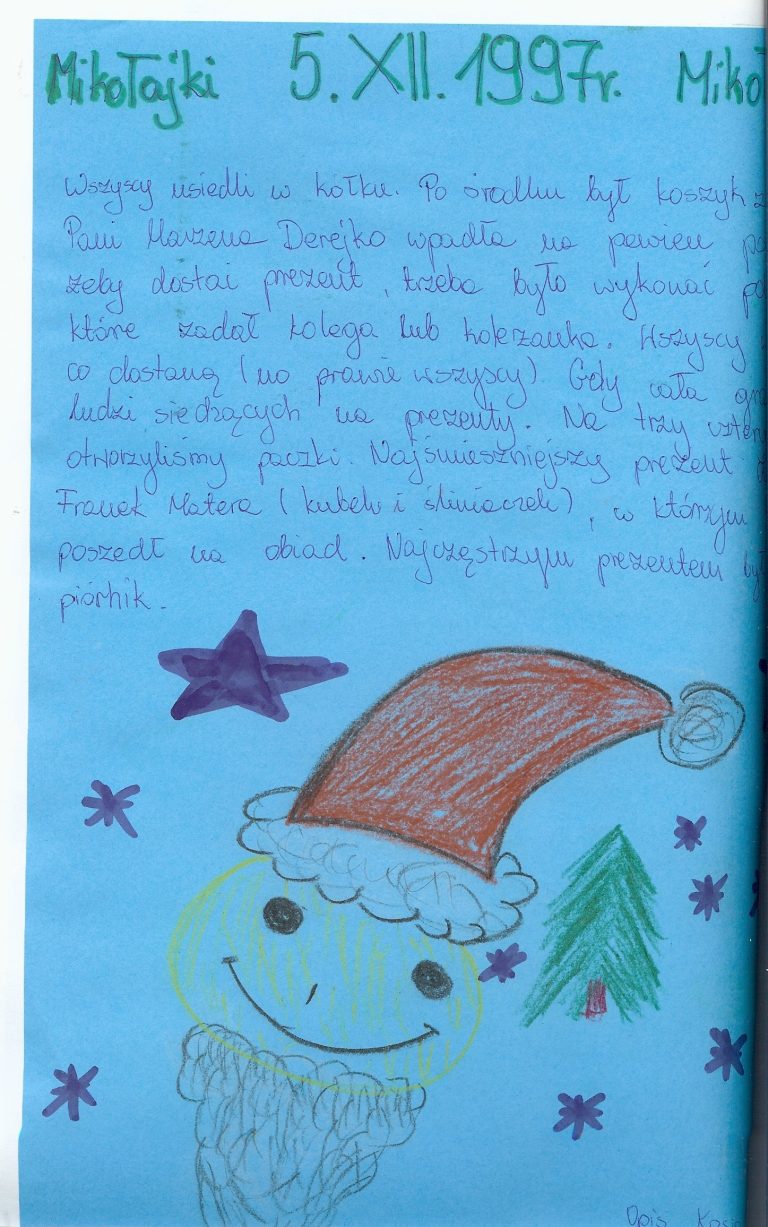 Mikołajki 5. XII. 1997r. Miko
Wszyscy usiedli w kółku. Po środku był koszyk z
Pani Marzena Derejko wpadła na pewien po
żeby dostać prezent, trzeba było wykonać po
które zadał kolega lub koleżanka. Wszyscy
co dostaną (no prawie wszyscy) Gdy cała gr
ludzi siedzących na prezenty. Na trzy cztery
otworzyliśmy paczki. Najśmieszniejszy prezent
Franek Matera (kubek i śliniaczek), w którzym
poszedł na obiad. Najczęstrzym prezentem był
piórnik.
Opis